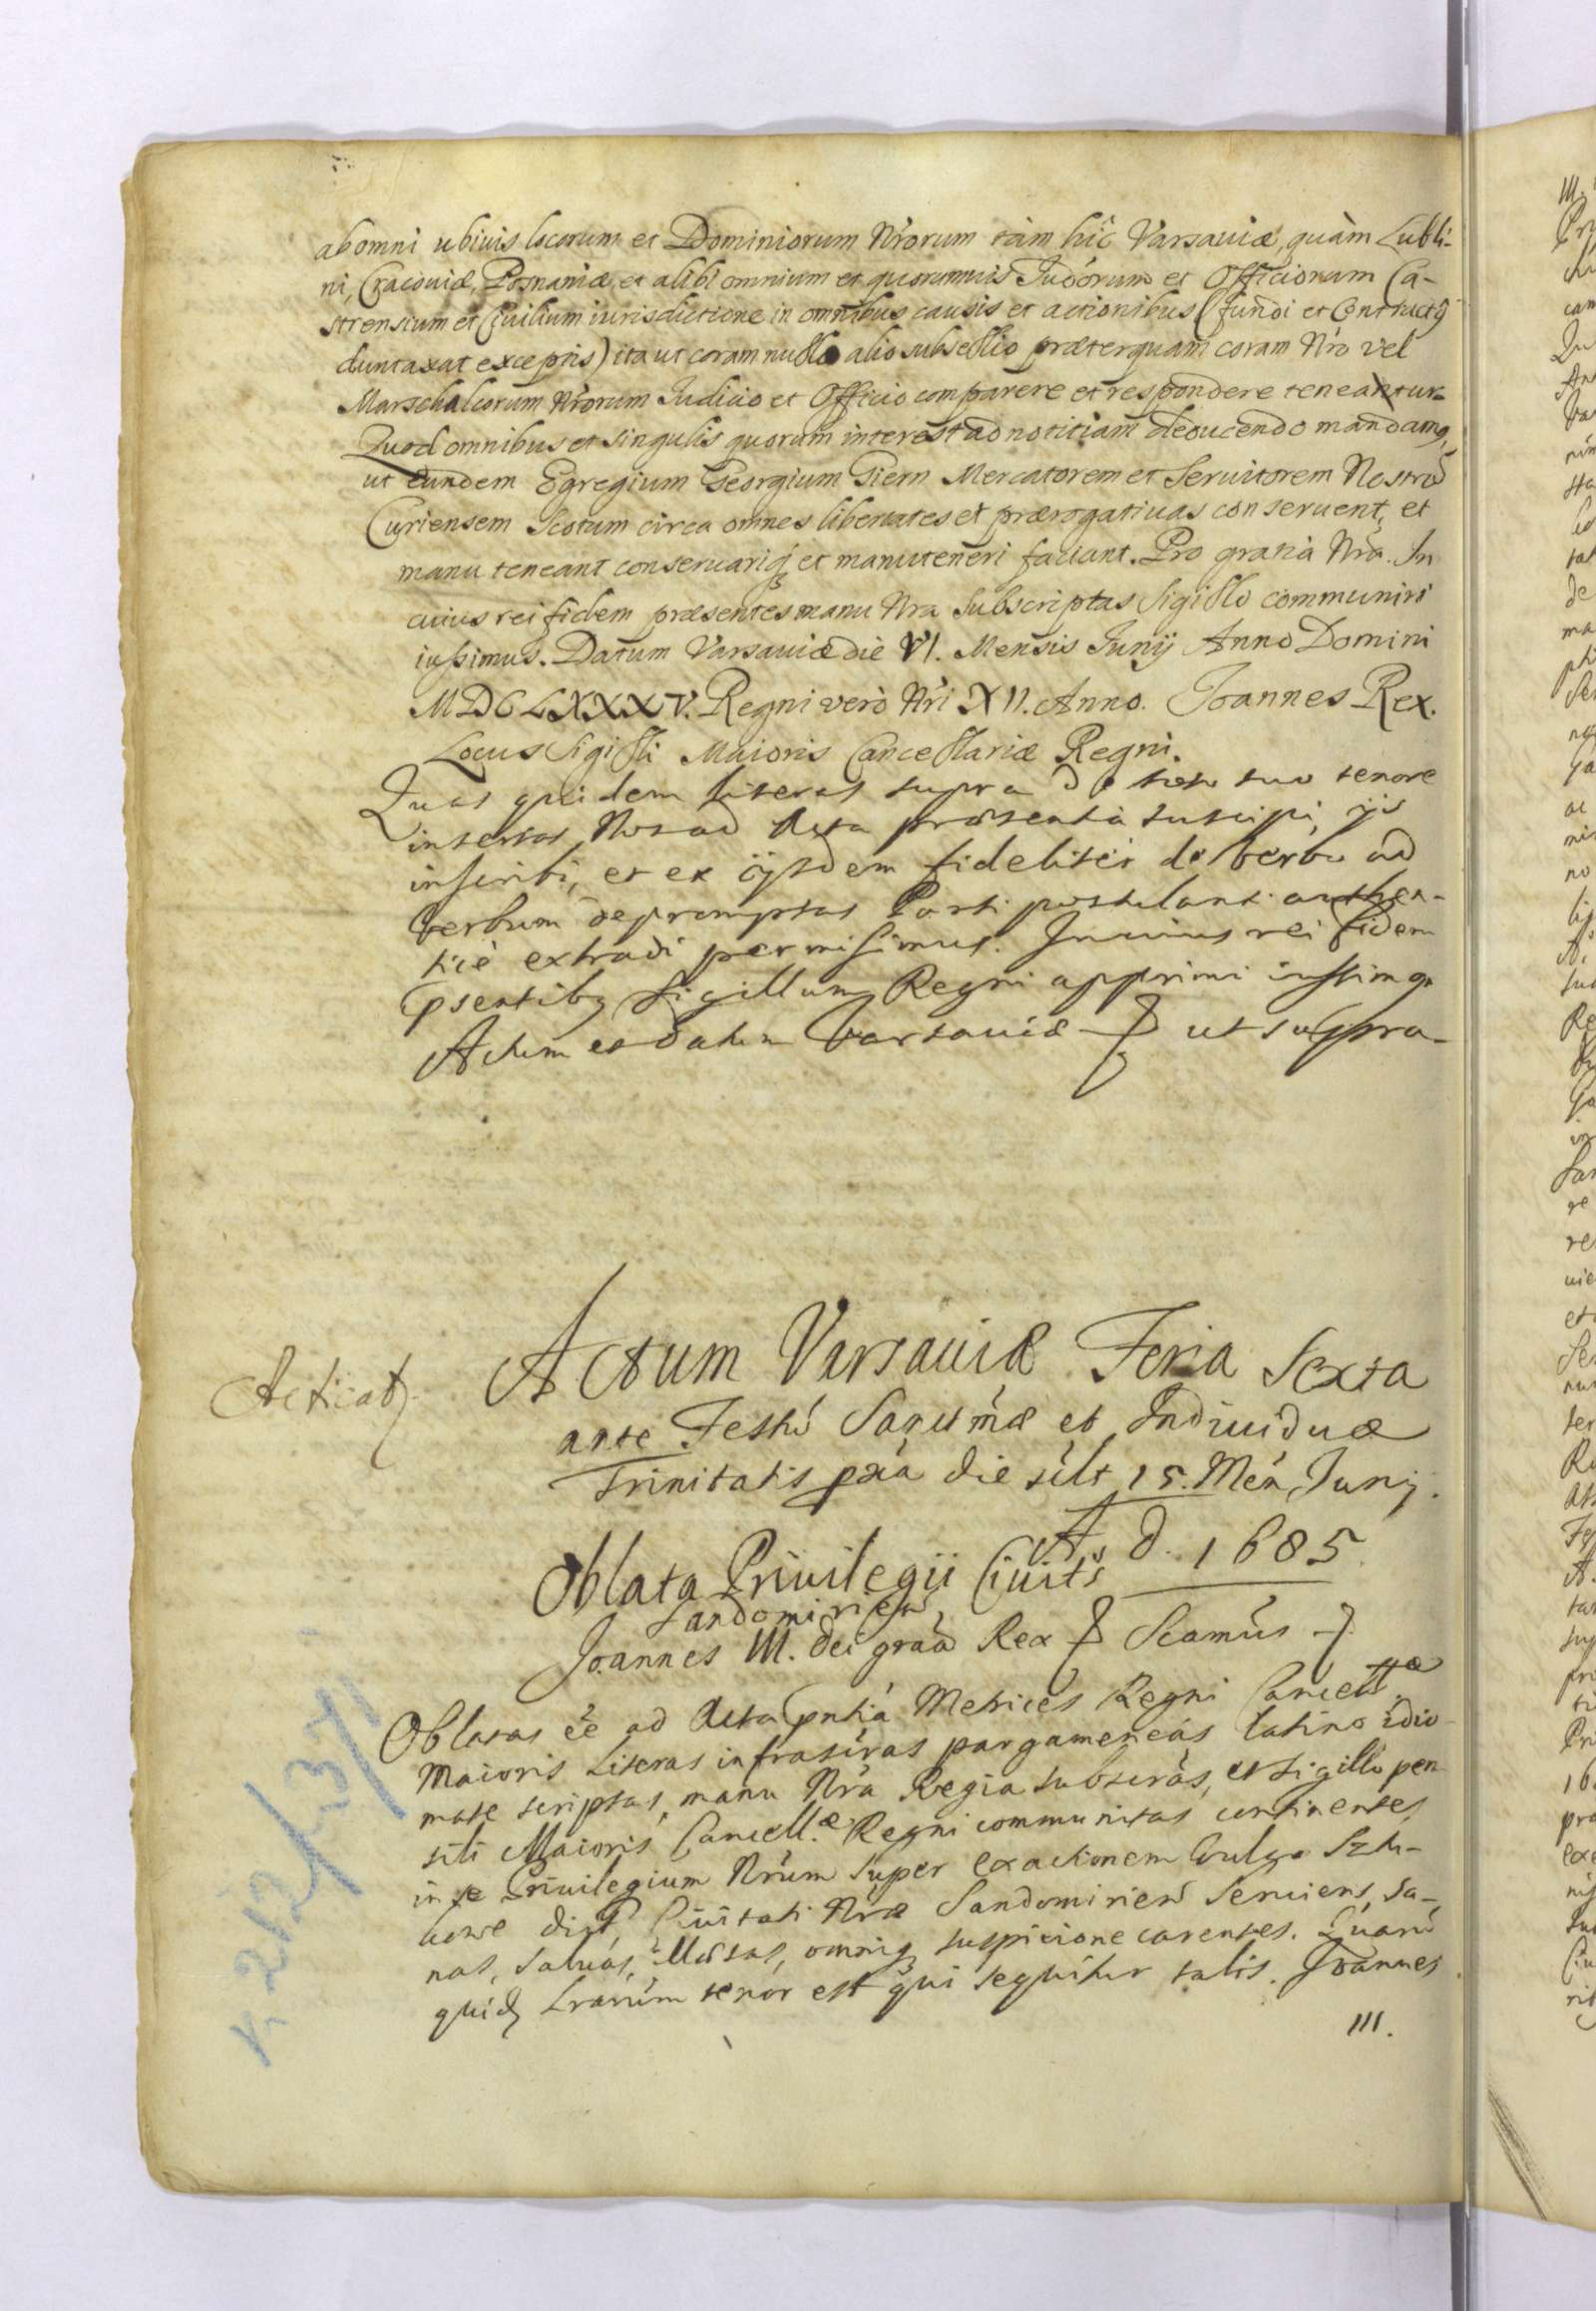 ab omni ubivis locorum et Dominiorum Nrorum tàm hic Varsaviæ, quàm Lubli-
ni, Cracoviæ, Posnaniæ et alibi omnium et quorumvis Judorum et Officiorum Ca-
strensium et Civilium iurisdictione in omnibus causis et actionibus (fundi et Contractg
duntaxat exceptis) ita ut coram nullo alio subsellio præterquam coram Nro vel
Marschalcorum Nrorum Judicio et Officio comparere et respondere teneantur.
Quod omnibus et singulis quorum interest ad notitiam deducendo mandamg,
ut eundem Egregium Georgium Giern Mercatorem et Servitorem Nostrũ
Curiensem Scotum circa omnes libertates et prærogativas conservent, et
manu teneant conservariq et manuteneri faciant. Pro gratia Nra. In
cuius rei fidem præsentes manu Nra subscriptas Sigillo communiri
iussimus. Datum Varsaviæ die VI. Mensis Junij Anno Domini
MDCLXXXV. Regni verò Nri XII. Anno. Joannes Rex.
Locus Sigilli Maioris Cancellariæ Regni.
Quas quidem literas supra de toto suo tenore
insertas Nos ad Acta præsentia suscipi, ijs
inscribi, et ex ijsdem fideliter de verbo ad
verbum depromptas Parti postulanti authen-
ticè extradi permisimus. In cuius rei fidem
pсentibg Sigillum Regni apprimi iussimg
Actum et datum Varsaviæ ut supra
Acticat
Actum Varsaviæ Feria Sexta
ante Festũ Sanctmæ et Individuæ
Trinitatis pxa die silt 15. Men Junij.
Ao d. 1685
Oblata Privilegii Civits
Sandomirien
Joannes III. Dei graa Rex Scamus
Oblatas ee ad Acta pntia Metrices Regni Cancellæ
Maioris Literas infrascras pargameneas latino idio-
mate scriptas, manu Nra Regia subscras, et sigillo pen
sili Maioris Cancell.æ Regni communitas continentes
in se Privilegium Nrum super exactionem vulgo Szlu-
howe dict, Civitati Nræ Sandomirien serviens, sa-
nas, salvas, illæsas, omniq suspicione carentes. Quarũ
quid Lrarum tenor est qui sequitur talis. Joannes
III.